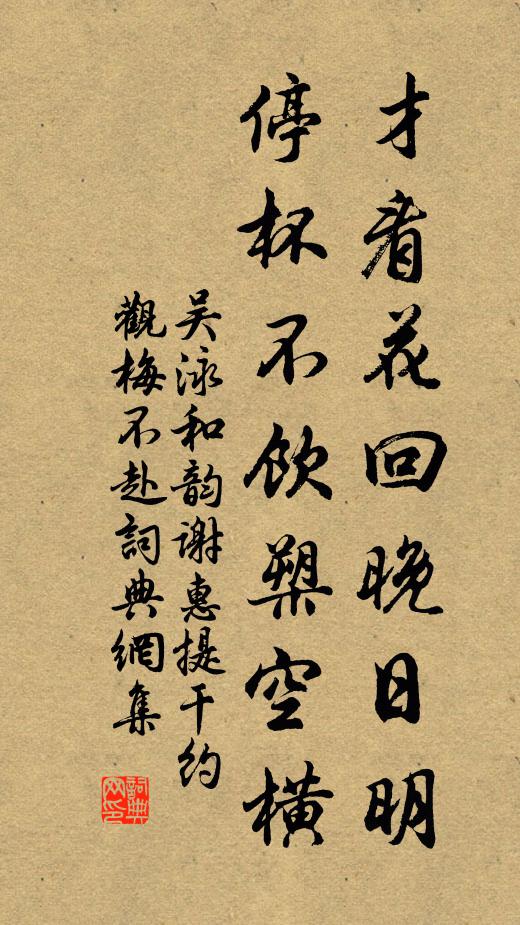 才看花回晚日明
停杯不飲槊空橫
吴泳和韵谢惠提干约
觀梅不赴詞典網集
詞典网印